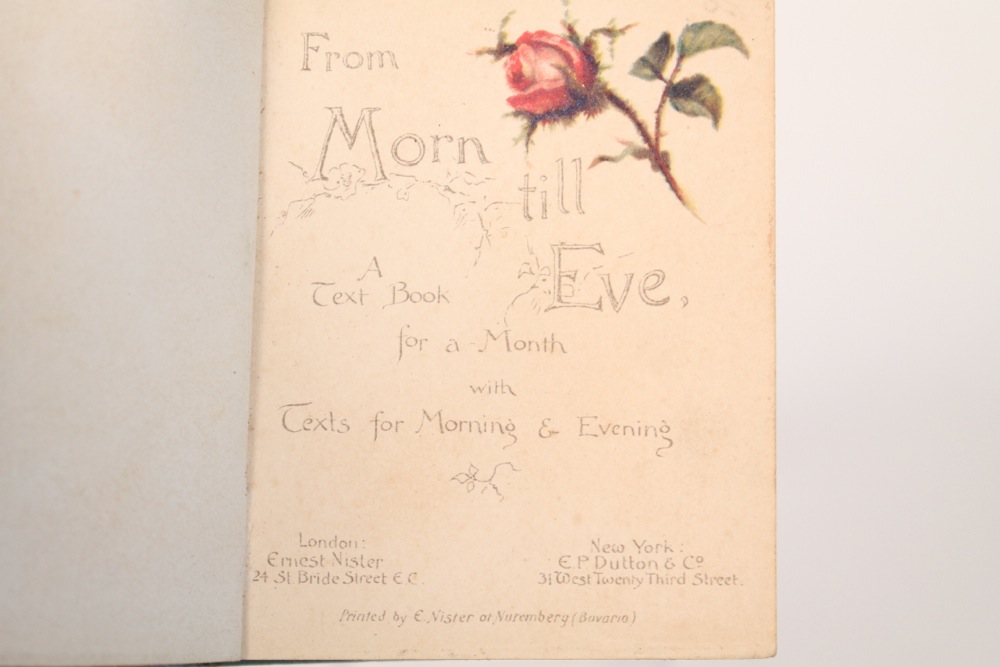 From
Morn
till
Eve,
A
Text Book
for a Month
with
Texts for Morning & Evening
London:
Ernest Nister
24 St. Bride Street E.C.
New York:
E.P. Dutton & Co
31 West Twenty Third Street.
Printed by E. Nister at Nuremberg (Bavaria)